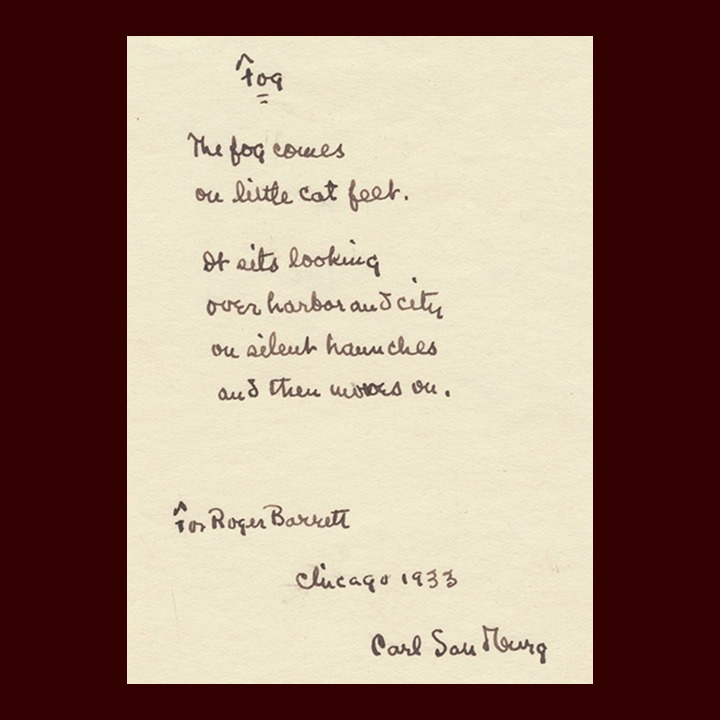 Fog
The fog comes
on little cat feet.
It sits looking
over harbor and city
on silent haunches
and then moves on.
For Roger Barrett
Chicago 1933
Carl Sandburg